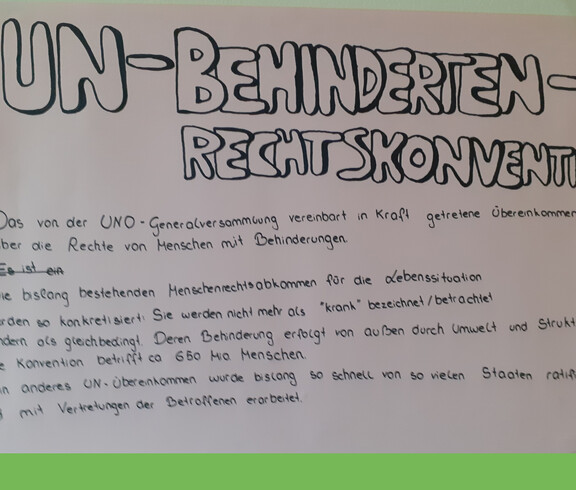 UN-BEHINDERTEN-
RECHTSKONVENTI
Das von der UNO-Generalversammlung vereinbart in Kraft getretene Übereinkommen
ber die Rechte von Menschen mit Behinderungen.
Es ist ein
ie bislang bestehenden Menschenrechtsabkommen für die Lebenssituation
rden so konkretisiert: Sie werden nicht mehr als "krank" bezeichnet/betrachtet
ndern als gleichbedingt. Deren Behinderung erfolgt von außen durch Umwelt und Strukt
e Konvention betrifft ca 650 Mio Menschen.
in anderes UN-Übereinkommen wurde bislang so schnell von so vielen Staaten ratifi
d mit Vertretungen der Betroffenen erarbeitet.